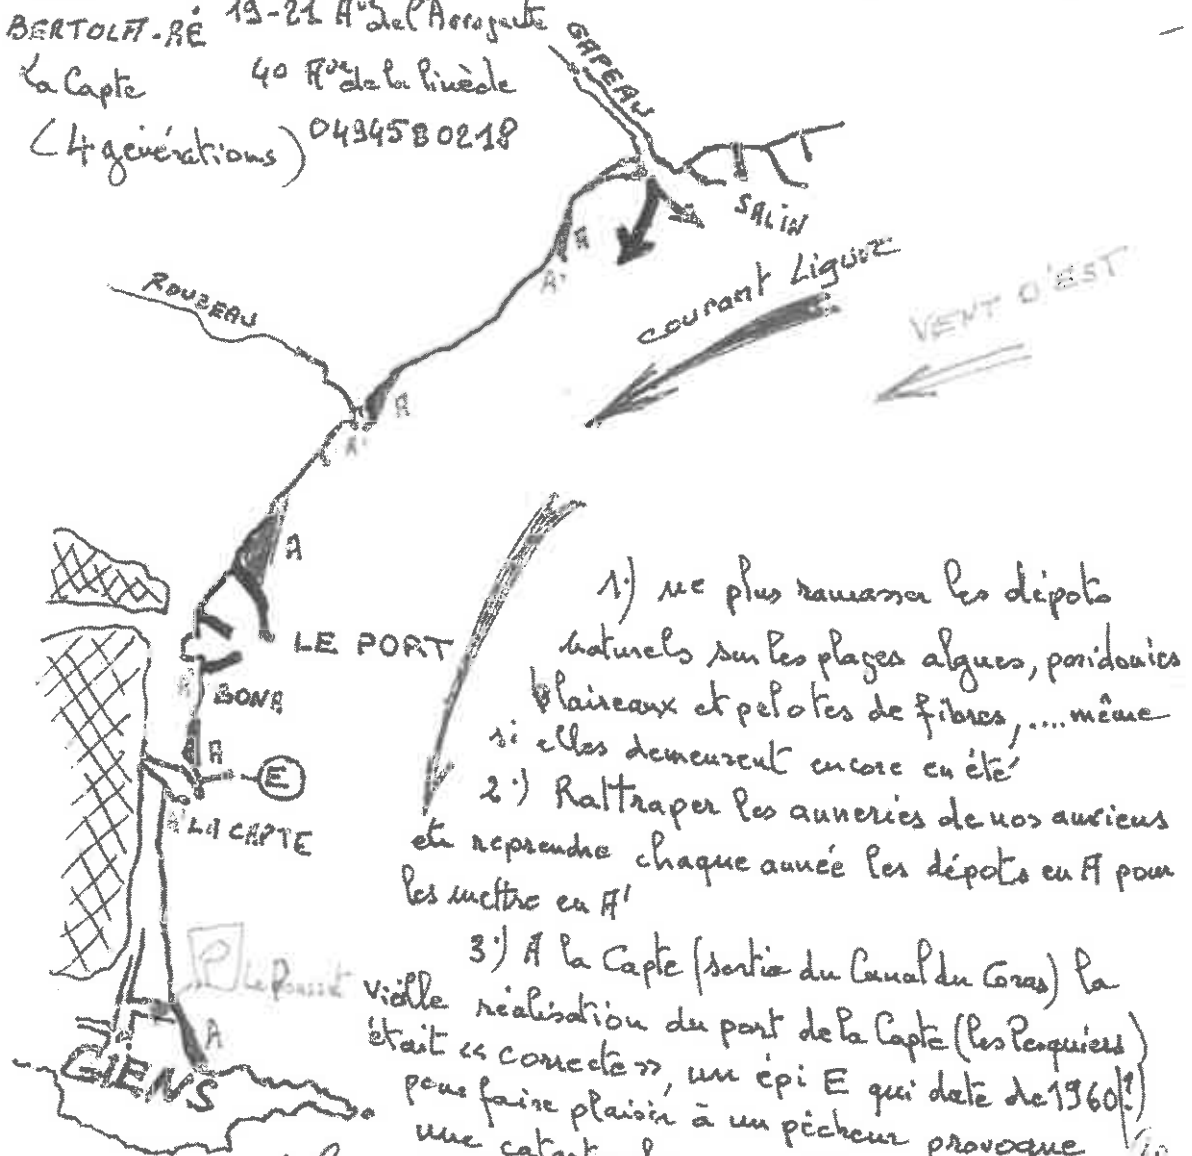 BERTOLA-RÉ 19-21 Aue de l'Arrogante
La Capte 40 Aue de la Pinède
(4 générations) 0494580218
GAPEAU
SALIN
A
A'
courant Ligure
VENT D'EST
ROUBEAU
A
A'
A
LE PORT
A'
BONA
A
E
A'
LA CAPTE
A
GIENS
1°) ne plus ramasser les dépots
naturels sur les plages algues, posidonies
plaireaux et pelotes de fibres, .... même
si elles demeurent encore en été
2°) Rattraper les anneries de nos anciens
et reprendre chaque année les dépots en A pour
les mettre en A'
3°) A la Capte (sortie du Canal du Ceras) la
vieille réalisation du port de la Capte (les Pesquiers)
était << correcte >>, un épi E qui date de 1960(?)
pour faire plaisir à un pêcheur provoque
une